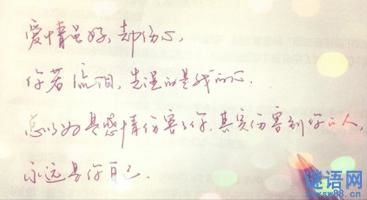 爱情虽好,却伤心,
你若流泪,先湿的是我的心.
总以为是感情伤害了你,其实伤害到你的人,
永远是你自己.
谜语网
www.88.cn